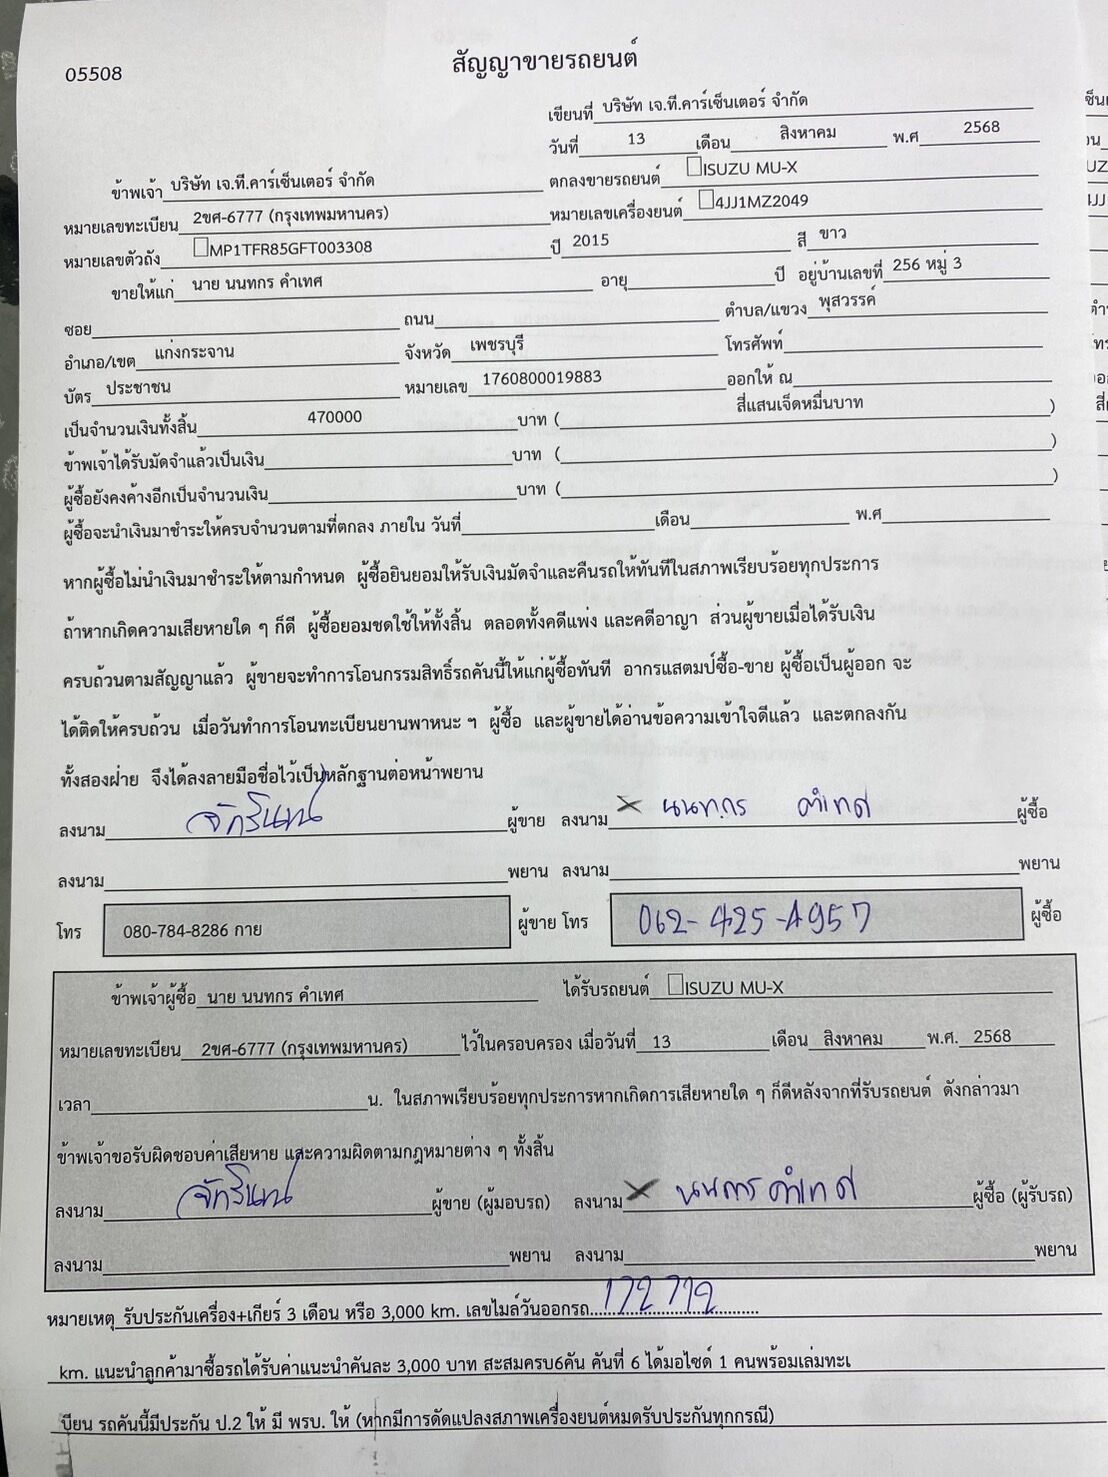 05508
สัญญาขายรถยนต์
เขียนที่ บริษัท เจ.ที.คาร์เซ็นเตอร์ จำกัด
วันที่ 13 เดือน สิงหาคม พ.ศ 2568
ข้าพเจ้า บริษัท เจ.ที.คาร์เซ็นเตอร์ จำกัด ตกลงขายรถยนต์ ISUZU MU-X
หมายเลขทะเบียน 2ขศ-6777 (กรุงเทพมหานคร) หมายเลขเครื่องยนต์ 4JJ1MZ2049
หมายเลขตัวถัง MP1TFR85GFT003308 ปี 2015 สี ขาว
ขายให้แก่ นาย นนทกร คำเทศ อายุ ปี อยู่บ้านเลขที่ 256 หมู่ 3
ซอย ถนน ตำบล/แขวง พุสวรรค์
อำเภอ/เขต แก่งกระจาน จังหวัด เพชรบุรี โทรศัพท์
บัตร ประชาชน หมายเลข 1760800019883 ออกให้ ณ
เป็นจำนวนเงินทั้งสิ้น 470000 บาท ( สี่แสนเจ็ดหมื่นบาท )
ข้าพเจ้าได้รับมัดจำแล้วเป็นเงิน บาท ( )
ผู้ซื้อยังคงค้างอีกเป็นจำนวนเงิน บาท ( )
ผู้ซื้อจะนำเงินมาชำระให้ครบจำนวนตามที่ตกลง ภายใน วันที่ เดือน พ.ศ
หากผู้ซื้อไม่นำเงินมาชำระให้ตามกำหนด ผู้ซื้อยินยอมให้รับเงินมัดจำและคืนรถให้ทันทีในสภาพเรียบร้อยทุกประการ
ถ้าหากเกิดความเสียหายใด ๆ ก็ดี ผู้ซื้อยอมชดใช้ให้ทั้งสิ้น ตลอดทั้งคดีแพ่ง และคดีอาญา ส่วนผู้ขายเมื่อได้รับเงิน
ครบถ้วนตามสัญญาแล้ว ผู้ขายจะทำการโอนกรรมสิทธิ์รถคันนี้ให้แก่ผู้ซื้อทันที อากรแสตมป์ซื้อ-ขาย ผู้ซื้อเป็นผู้ออก จะ
ได้ติดให้ครบถ้วน เมื่อวันทำการโอนทะเบียนยานพาหนะ ฯ ผู้ซื้อ และผู้ขายได้อ่านข้อความเข้าใจดีแล้ว และตกลงกัน
ทั้งสองฝ่าย จึงได้ลงลายมือชื่อไว้เป็นหลักฐานต่อหน้าพยาน
ลงนาม จักรินทน์ ผู้ขาย ลงนาม × นนทกร คำเทศ ผู้ซื้อ
ลงนาม พยาน ลงนาม พยาน
โทร 080-784-8286 กาย ผู้ขาย โทร 062-425-4957 ผู้ซื้อ
ข้าพเจ้าผู้ซื้อ นาย นนทกร คำเทศ ได้รับรถยนต์ ISUZU MU-X
หมายเลขทะเบียน 2ขศ-6777 (กรุงเทพมหานคร) ไว้ในครอบครอง เมื่อวันที่ 13 เดือน สิงหาคม พ.ศ. 2568
เวลา น. ในสภาพเรียบร้อยทุกประการหากเกิดการเสียหายใด ๆ ก็ดีหลังจากที่รับรถยนต์ ดังกล่าวมา
ข้าพเจ้าขอรับผิดชอบค่าเสียหาย และความผิดตามกฎหมายต่าง ๆ ทั้งสิ้น
ลงนาม จักรินทน์ ผู้ขาย (ผู้มอบรถ) ลงนาม × นนทกร คำเทศ ผู้ซื้อ (ผู้รับรถ)
ลงนาม พยาน ลงนาม พยาน
หมายเหตุ รับประกันเครื่อง+เกียร์ 3 เดือน หรือ 3,000 km. เลขไมล์วันออกรถ 172772
km. แนะนำลูกค้ามาซื้อรถได้รับค่าแนะนำคันละ 3,000 บาท สะสมครบ6คัน คันที่ 6 ได้มอไซด์ 1 คนพร้อมเล่มทะเ
บียน รถคันนี้มีประกัน ป.2 ให้ มี พรบ. ให้ (หากมีการดัดแปลงสภาพเครื่องยนต์หมดรับประกันทุกกรณี)